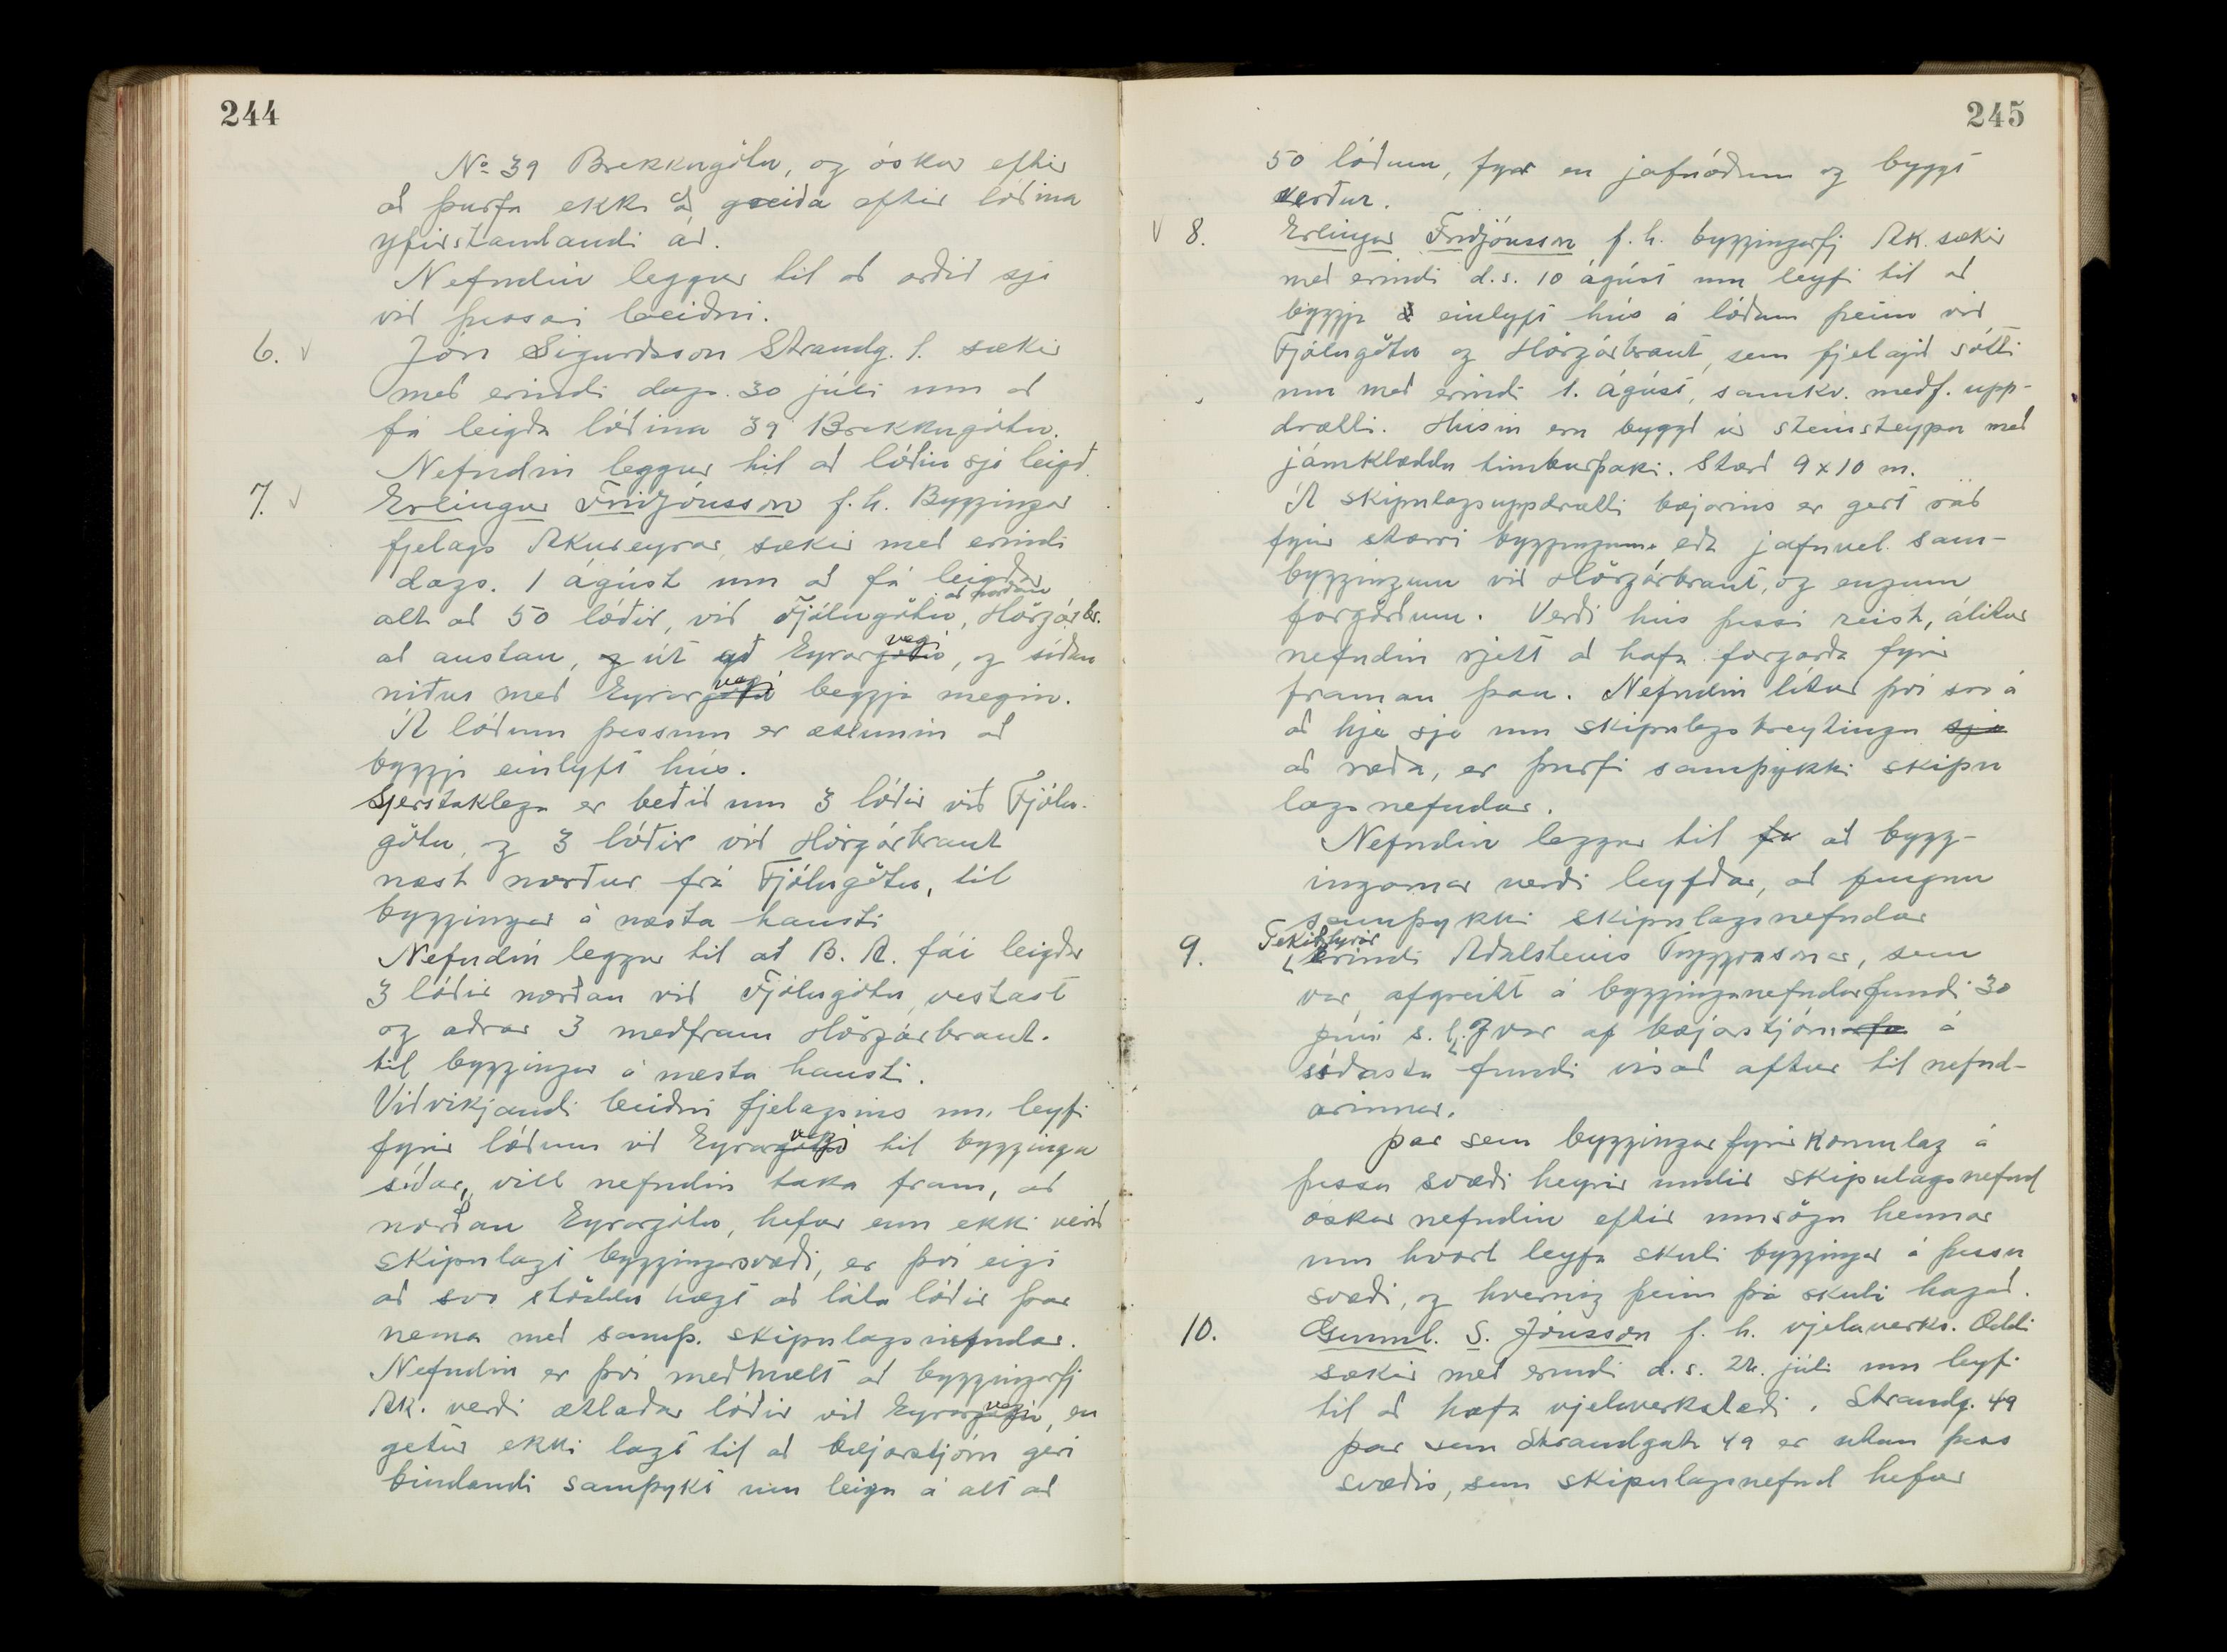 244
No 39 Brekkugötu, og óskar eftir
að þurfa ekki að greiða eftir lóðina
yfirstandandi ár.
Nefndin leggur til að orðið sje
við þessari beiðni.
6. √ Jón Sigurðsson Strandg. 1. sækir
með erindi dags. 30 júlí um að
fá leigða lóðina 39 Brekkugötu.
Nefndin leggur til að lóðin sje leigð.
7. √ Erlingur Friðjónsson f.h. Byggingar
fjelags Akureyrar, sækir með erindi
dags. 1 ágúst um að fá leigðar
alt að 50 lóðir, við Fjólugötu að norðan, Hörgárbr.
að austan, og út að Eyrarvegi, og síðan
niður með Eyrarvegi beggja megin.
Á lóðum þessum er ætlunin að
byggja einlyft hús.
Sjerstaklega er beðið um 3 lóðir við Fjólu-
götu, og 3 lóðir við Hörgárbraut
næst norður frá Fjólugötu, til
byggingar á næsta hausti
Nefndin leggur til að B. A. fái leigðar
3 lóðir norðan við Fjólugötu, vestast
og aðrar 3 meðfram Hörgárbraut.
til byggingar á næsta hausti.
Viðvíkjandi beiðni fjelagsins um leyfi
fyrir lóðum við Eyrarvegi til bygginga
síðar, vill nefndin taka fram, að
norðan Eyrargötu, hefur enn ekki verið
skipulagt byggingarsvæði, er því eigi
að svo stöddu hægt að láta lóðir þar
nema með samþ. skipulagsnefndar.
Nefndin er því meðmælt að byggingarfj
Ak. verði ætlaðar lóðir við Eyrarveginn, en
getur ekki lagt til að bæjarstjórn geri
bindandi samþykt um leigu á alt að
245
50 lóðum, fyr en jafnóðum og byggt
verður.
√ 8. Erlingur Friðjónsson f.h. byggingarfj Ak. sækir
með erindi d.s. 10 ágúst um leyfi til að
byggja einlyft hús á lóðum þeim við
Fjólugötu og Hörgárbraut, sem fjelagið sótti
um með erindi 1. ágúst, samkv. meðf. upp-
drætti. Húsin eru byggð úr steinsteypu með
járnklæddu timburþaki. Stærð 9 x 10 m.
Á skipulagsuppdrætti bæjarins er gert ráð
fyrir stærri byggingum eða jafnvel sam-
byggingum við Hörgárbraut, og engum
forgörðum. Verði hús þessi reist, álítur
nefndin rjett að hafa forgarða fyrir
framan þau. Nefndin lítur því svo á
að hjer sje um skipulagsbreytingu sje
að ræða, er þurfi samþykki skipu
lagsnefndar.
Nefndin leggur til fa að bygg-
ingarnar verði leyfðar, að fengnu
samþykki skipulagsnefndar
9. Tekið fyrir erindi Aðalsteins Tryggvasonar, sem
var afgreitt á byggingarnefndarfundi 30
júní s. l. og var af bæjarstjórn á
síðasta fundi vísað aftur til nefnd-
arinnar.
Þar sem byggingarfyrirkomulag á
þessu svæði heyrir undir skipulagsnefnd
óskar nefndin eftir umsögn hennar
um hvort leyfa skuli byggingar á þessu
svæði, og hvernig þeim þá skuli hagað.
10. Gunnl. S. Jónsson f.h. vjelaverks. Oddi
sækir með erindi d.s. 24. júlí um leyfi
til að hafa vjelaverkstæði í Strandg. 49
þar sem Strandgata 49 er utan þess
svæðis, sem skipulagsnefnd hefur